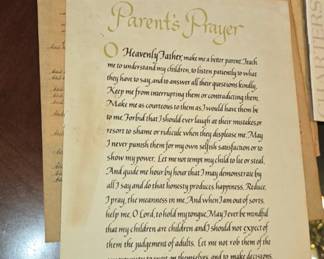 Parent's Prayer
O Heavenly Father, make me a better parent. Teach
me to understand my children, to listen patiently to what
they have to say, and to answer all their questions kindly.
Keep me from interrupting them or contradicting them.
Make me as courteous to them as I would have them be
to me. Forbid that I should ever laugh at their mistakes, or
resort to shame or ridicule when they displease me. May
I never punish them for my own selfish satisfaction or to
show my power. Let me not tempt my child to lie or steal.
And guide me hour by hour that I may demonstrate by
all I say and do that honesty produces happiness. Reduce,
I pray, the meanness in me. And when I am out of sorts,
help me, O Lord, to hold my tongue. May I ever be mindful
that my children are children and I should not expect of
them the judgement of adults. Let me not rob them of the